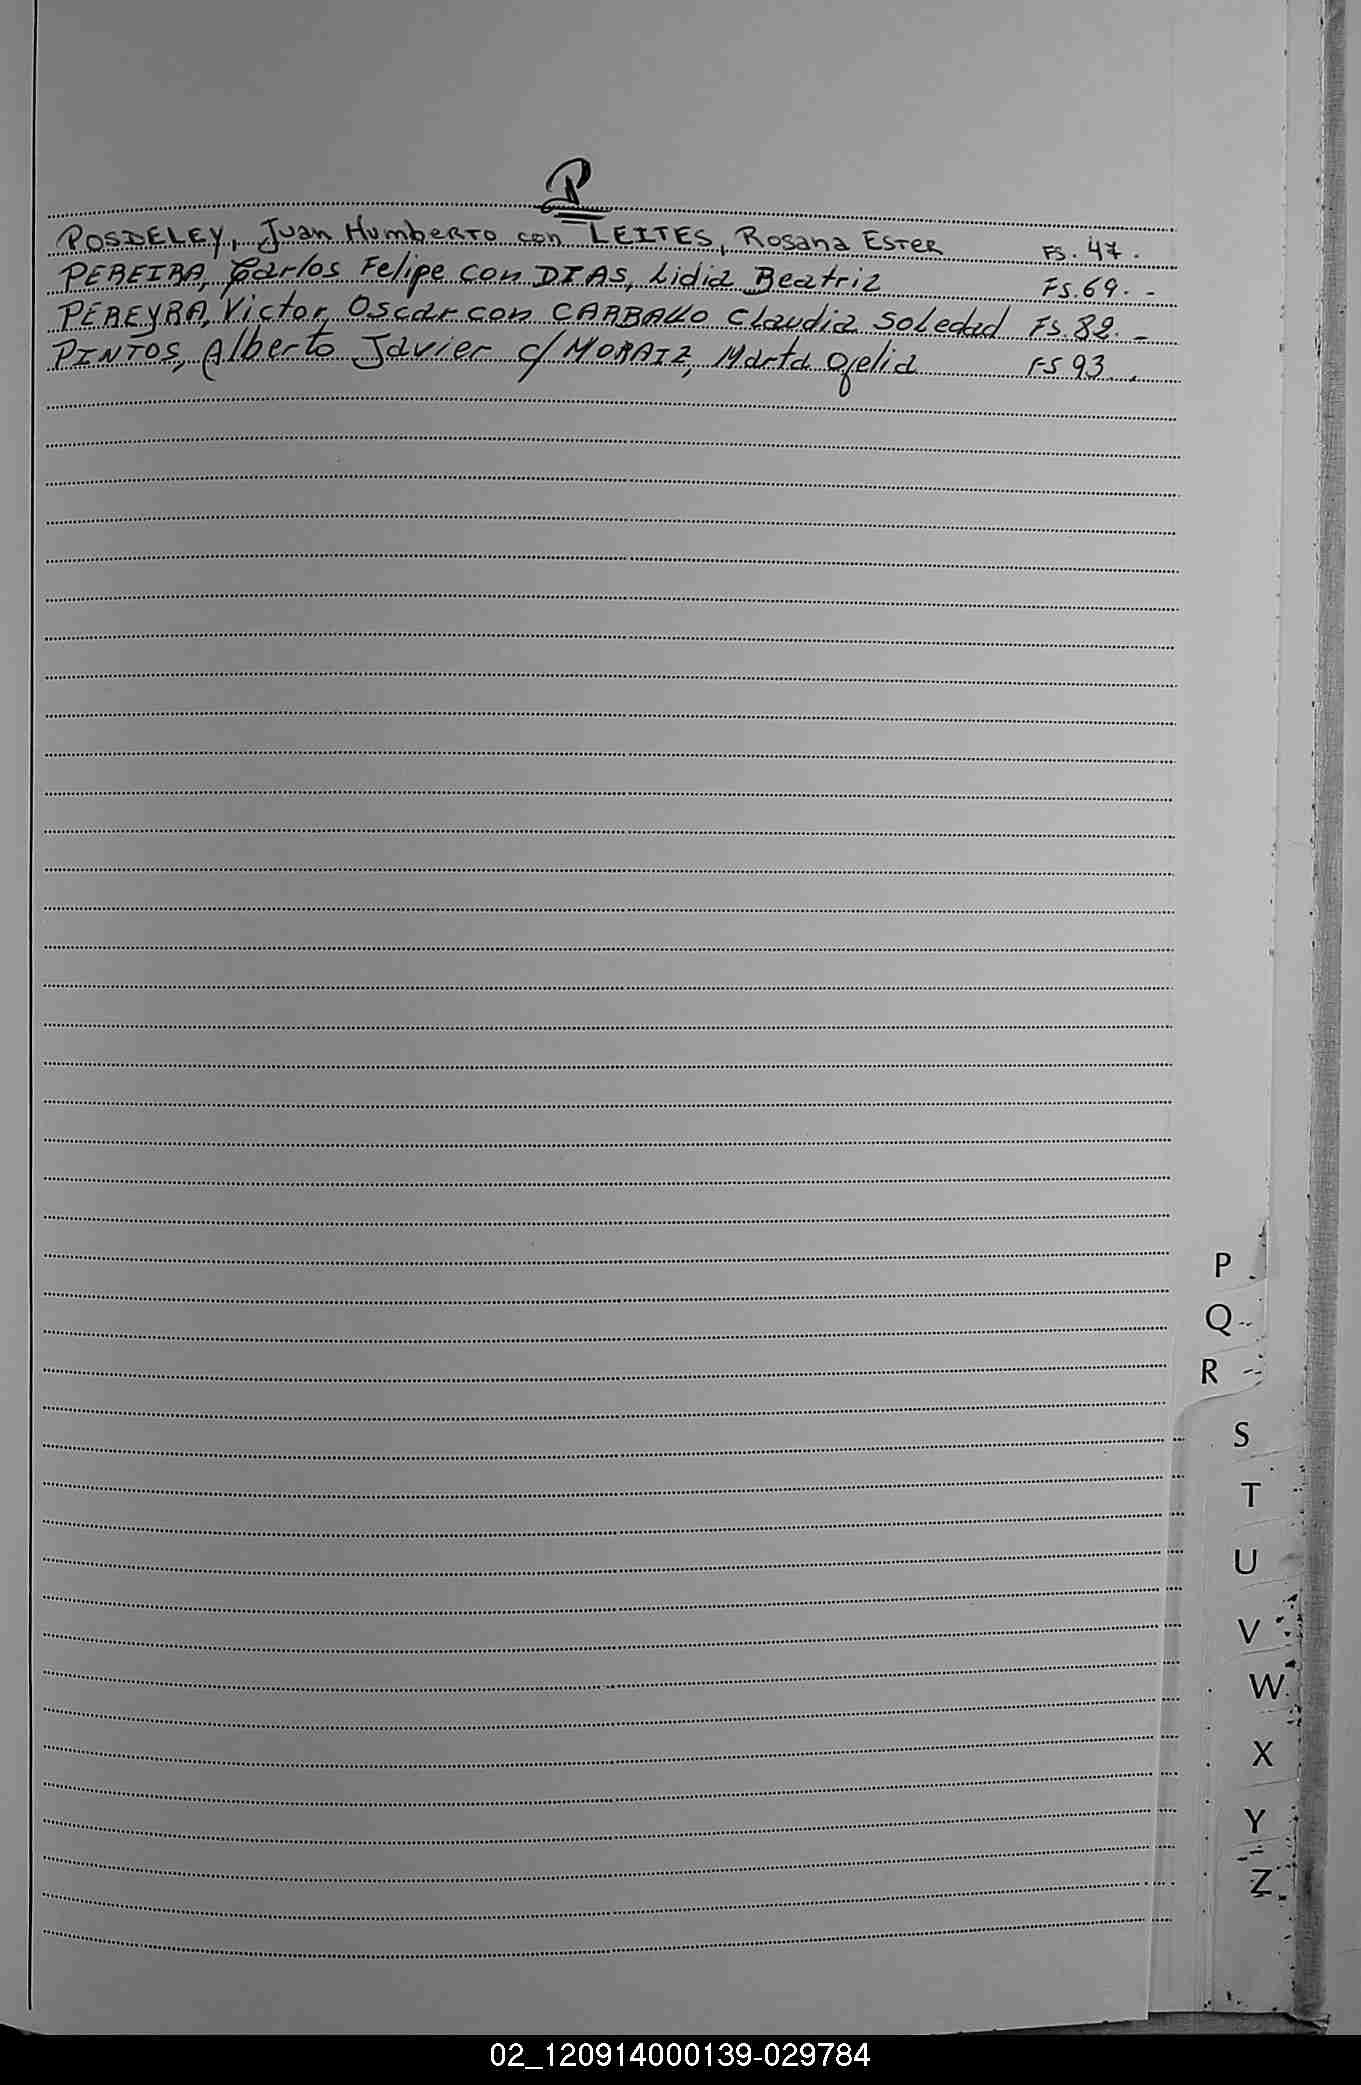 P
POSDELEY, Juan Humberto con LEITES, Rosana Ester Fs. 47.
PEREIRA, Carlos Felipe con DIAS, Lidia Beatriz Fs. 69. -
PEREYRA, Victor Oscar con CARBALLO Claudia Soledad Fs. 82. -
PINTOS, Alberto Javier c/ MORAIZ, Marta Ofelia FS 93..
P
Q
R
S
T
U
V
W
X
Y
Z
02_120914000139-029784